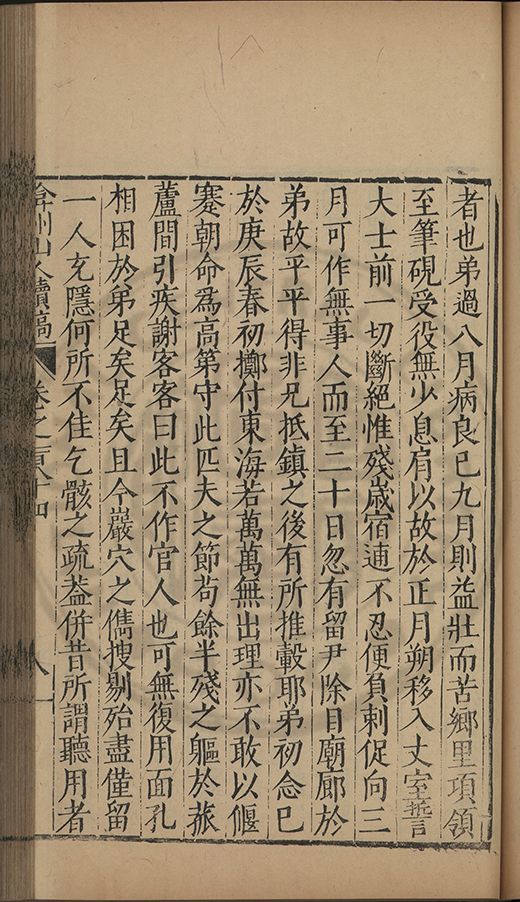 者也弟過八月病良已九月則益壯而苦鄉里項領
至筆硯受役無少息肩以故於正月朔移入丈室誓
大士前一切斷絕惟殘歲宿逋不忍便負剌促向三
月可作無事人而至二十日忽有留尹除目廟廊於
弟故平平得非兄抵鎮之後有所推轂耶弟初念已
於庚辰春初擲付東海若萬萬無出理亦不敢以偃
蹇朝命爲高第守此匹夫之節茍餘半殘之軀於菰
蘆間引疾謝客客曰此不作官人也可無復用面孔
相困於弟足矣足矣且今巖穴之儁搜剔殆盡僅留
一人充隱何所不佳乞骸之疏葢併昔所謂聽用者
弇州山人續稿 卷之一百八十四 八